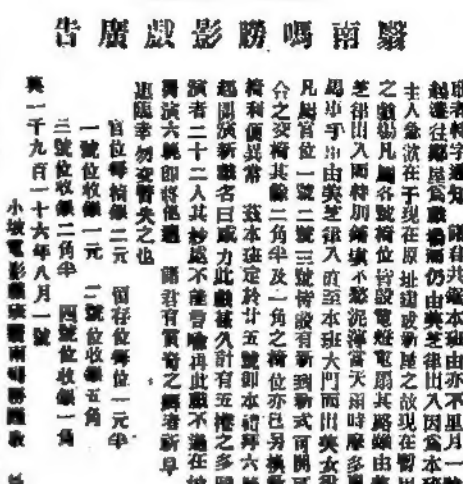 南嗎勝影戲廣告
特字通知 諸君共鑑本班由亦不里月一號
起遷往鄰屋為戲場而仍由美芝律出入因為本班
主人念欲在于現在原址建設新屋之故現在暫用
之戲場凡屬各號椅位皆設電燈電扇其路雖由美
芝律出入而特別鋪填不愁泥濘當天雨時摩多
馬車手車由美芝律入直至本班大門而出美女律
凡屬官位一號二號三號皆設有新到新式可開可
合之交椅其餘二角半及一角之椅位亦已另換
椅利便異常 茲本班定於廿五號即本禮拜六晚
起開演新戲名曰威力此戲甚久計有五捲之多
演者二十二人其妙處不能言喻再此戲不過在坡
獨演六晚即將他適 諸君有賞奇之癖者祈早
惠臨幸勿交臂失之也
官位每椅銀二元 留存位每位一元半
一號位收銀一元 二號位收銀五角
三號位收銀二角半 四號位收銀一角
英一千九百一十六年八月一號
小坡電影戲班南嗎勝謹啟